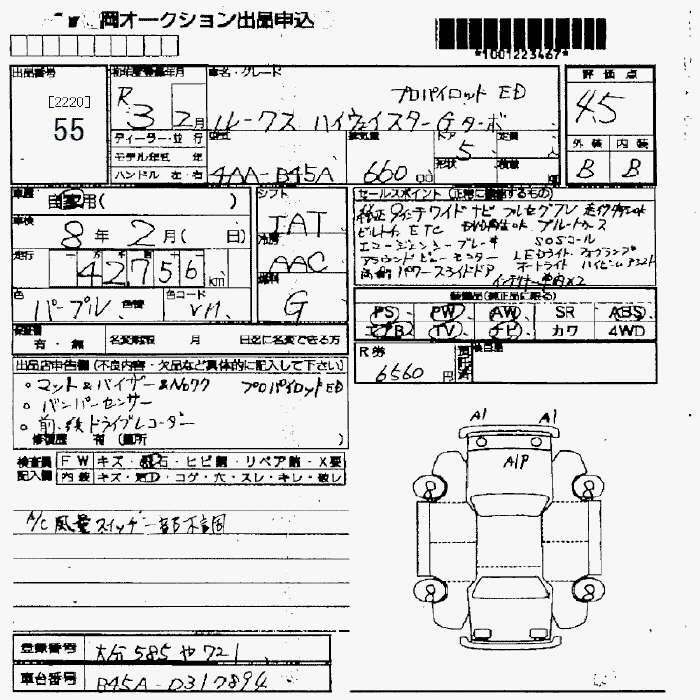 岡オークション出品申込
*1001223467*
出品番号
[2220]
55
初年度登録年月
R 3 2月
車名・グレード
プロパイロット ED
ルークス ハイウェイスターGターボ
評価点
4.5
外装 内装
B B
ディーラー・並行
モデル年式 年
ハンドル 左・右
型式
4AA-B45A
排気量
660 cc
ドア
5
形状
定員
人
積載
車歴
自家用( )
車検
8年 2月( 日)
走行
42756 km
色
パープル
色替
色コード
シフト
IAT
冷房
AAC
燃料
G
セールスポイント(正常に機能するもの)
純正9インチワイドナビ フルセグTV
ビルトイン ETC ブルートゥース
エマージェンシーブレーキ SOSコール
アラウンドビューモニター LEDライト フォグランプ
両側パワースライドドア オートライト ハイビームアシスト
インテリキー
装備品(純正品に限る)
PS PW AW SR ABS
エアB TV ナビ カワ 4WD
有・無
名変期限 月 日迄に名変できる方
R券
6560円
検自量
出品店申告欄(不良内容・欠品など具体的に記入して下さい)
。マット&バイザー&No77 プロパイロットED
。バンパーセンサー
。前・後ドライブレコーダー
修復歴 有(箇所 )
検査員記入欄
FW キズ・飛石・ヒビ割・リペア跡・X要
内装 キズ・汚レ・コゲ・穴・スレ・キレ・破レ
A/C 風量スイッチ
A1 A1
A1P
登録番号
大分 585 や 721
車台番号
B45A-0317894